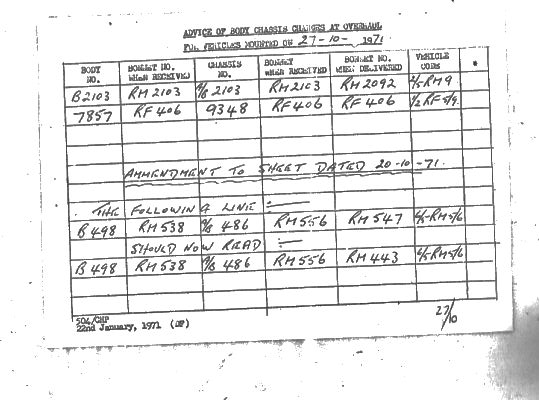 ADVICE OF BODY CHASSIS CHANGES AT OVERHAUL
FOR VEHICLES MOUNTED ON 27-10- 1971
BODY NO. BONNET NO. WHEN RECEIVED CHASSIS NO. BONNET WHEN RECEIVED BONNET NO. WHEN DELIVERED VEHICLE CODE *
B2103 RM2103 2103 RM2103 RM2092 2/5RM9
7857 RF406 9348 RF406 RF406 1/2RF5/9
AMMENDMENT TO SHEET DATED 20-10-71.
THE FOLLOWING LINE :—
B498 RM538 486 RM556 RM547 RM5/6
SHOULD NOW READ :—
B498 RM538 486 RM556 RM443 RM5/6
504/CHP
22nd January, 1971 (DF)
27/10